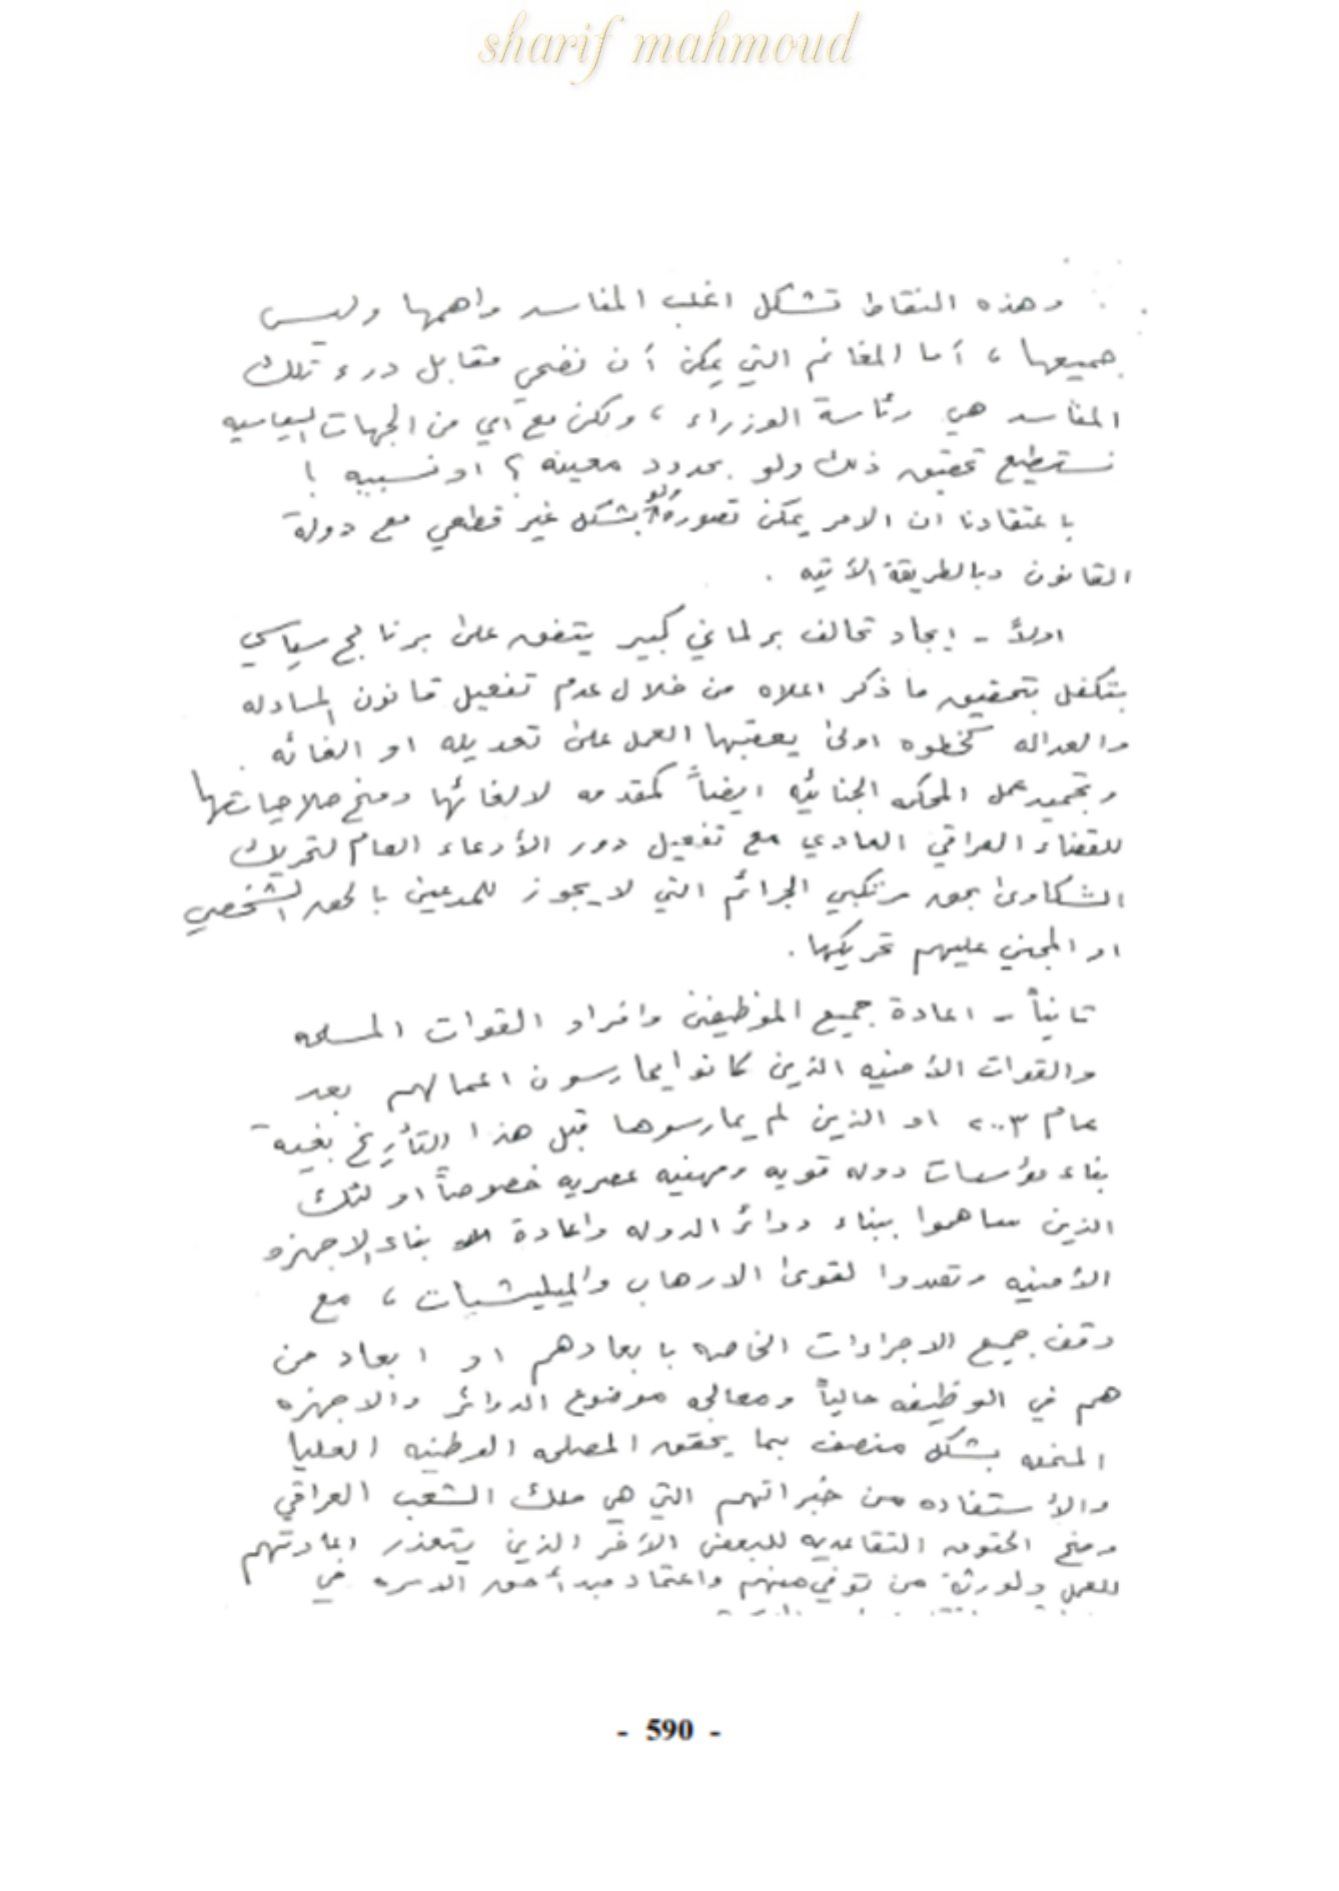 sharif mahmoud
وهذه النقاط تشكل اغلب المفاسد واهمها وليس
جميعها ، أما المغانم التي يمكن أن نضحي مقابل درء تلك
المفاسد هي رئاسة الوزراء ، ولكن مع أي من الجهات السياسيه
نستطيع تحقيق ذلك ولو بحدود معينه ؟ او نسبيه !
باعتقادنا ان الامر يمكن تصوره ولو بشكل غير قطعي مع دولة
القانون وبالطريقة الأتيه .
اولاً - إيجاد تحالف برلماني كبير يتفق على برنامج سياسي
يتكفل بتحقيق ما ذكر اعلاه من خلال عدم تفعيل قانون المسادله
والعداله كخطوه اولى يعقبها العمل على تعديله او الغائه .
وتجميد عمل المحكمه الجنائيه ايضاً كمقدمه لالغائها ومنح صلاحياتها
للقضاء العراقي العادي مع تفعيل دور الأدعاء العام لتحريك
الشكاوى بحق مرتكبي الجرائم التي لا يجوز للمدعين بالحق الشخصي
او المجني عليهم تحريكها .
ثانياً - اعادة جميع الموظفين وافراد القوات المسلحه
والقوات الأمنيه الذين كانوا يمارسون اعمالهم بعد
عام ٢٠٠٣ او الذين لم يمارسوها قبل هذا التأريخ بغية
بناء مؤسسات دوله قويه ومهنيه عصريه خصوصاً اولئك
الذين ساهموا ببناء دوائر الدوله واعادة بناء الاجهزه
الأمنيه وتصدوا لقوى الارهاب والميليشيات ، مع
وقف جميع الاجراءات الخاصه بابعادهم او ابعاد من
هم في الوظيفه حالياً ومعالجه موضوع الدوائر والاجهزه
المنحله بشكل منصف بما يحقق المصلحه الوطنيه العليا
والأستفاده من خبراتهم التي هي ملك الشعب العراقي
ومنح الحقوق التقاعديه للبعض الأخر الذين يتعذر اعادتهم
للعمل ولورثة من توفي منهم واعتماد مبدأ حق الاسره في
- 590 -